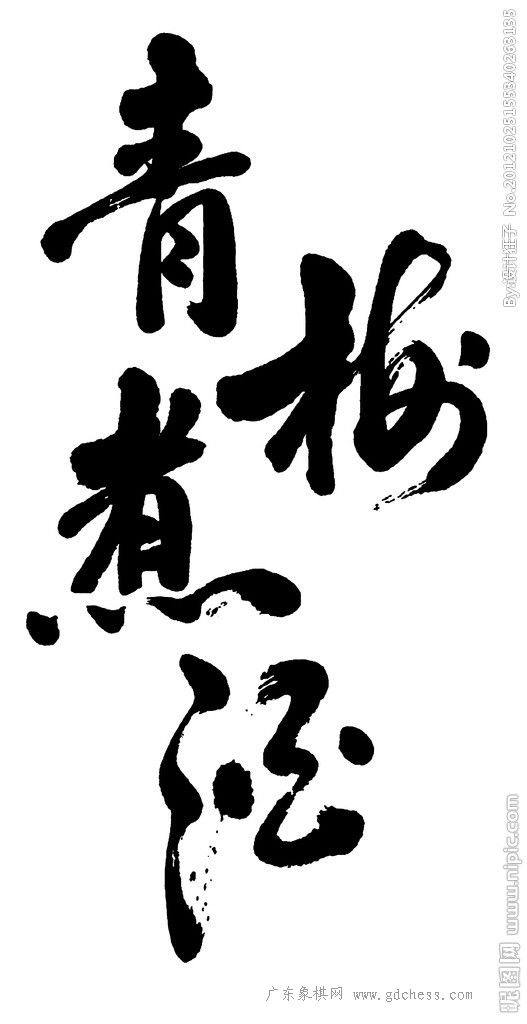 青梅煮酒
By:设计狂子 No.20121025155340263135
昵图网 www.nipic.com
广东象棋网 www.gdchess.com